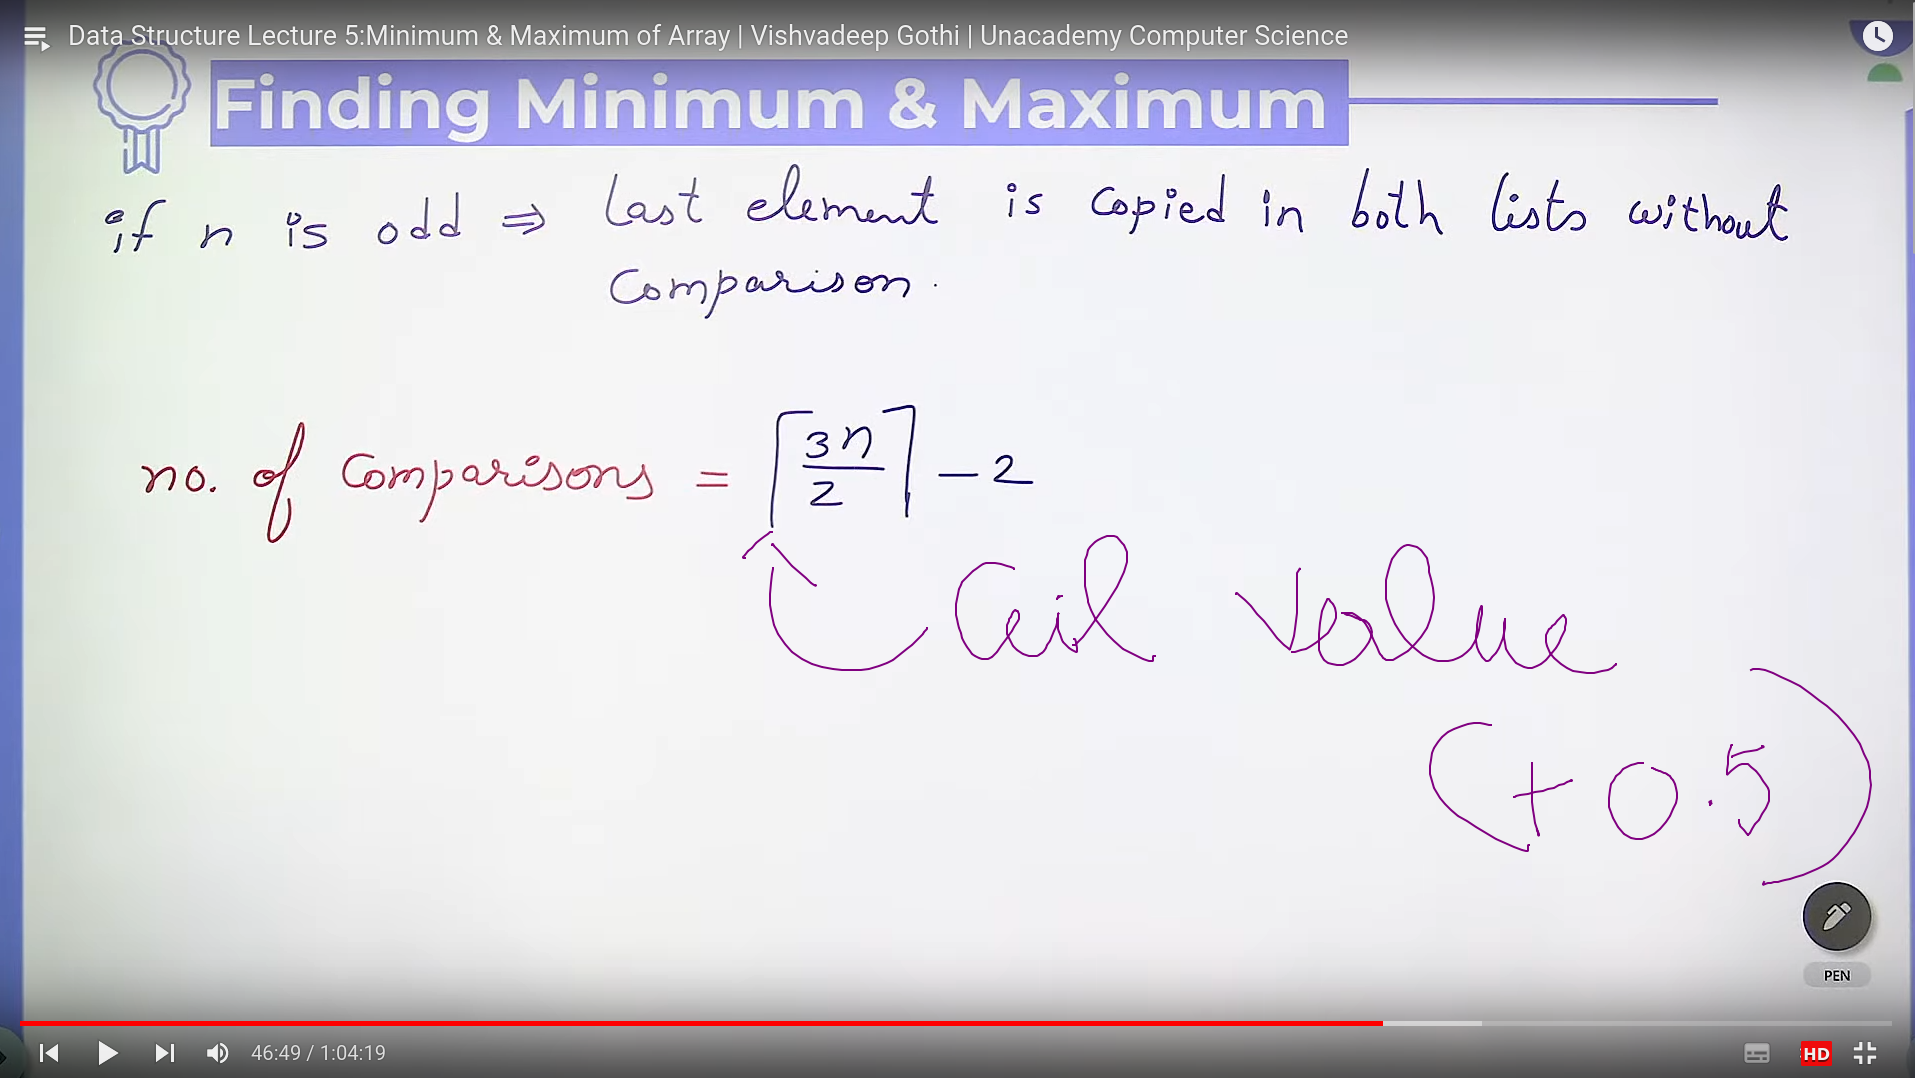 Data Structure Lecture 5:Minimum & Maximum of Array | Vishvadeep Gothi | Unacademy Computer Science
Finding Minimum & Maximum
if n is odd ⇒ Last element is copied in both lists without
Comparison.
no. of Comparisons = ⌈3n/2⌉ - 2
Ceil value
(+0.5)
PEN
46:49 / 1:04:19
HD